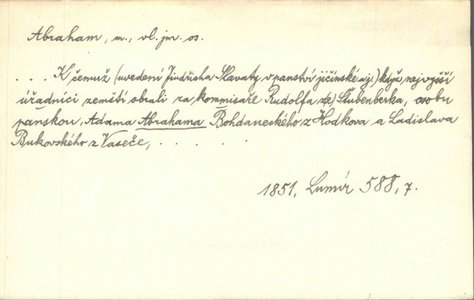 Abraham, m., vl. jm. os.
. . . K čemuž (uvedení Jindřicha Slavaty v panství jičínské aj.) když nejvyšší
úřadníci zemští obrali za komisaře Rudolfa (ze) Stubenberka, osobu
panskou, Adama Abrahama Bohdaneckého z Hodkova a Ladislava
Bukovského z Vaseče, . . . . . .
1851, Lumír 588, 7.